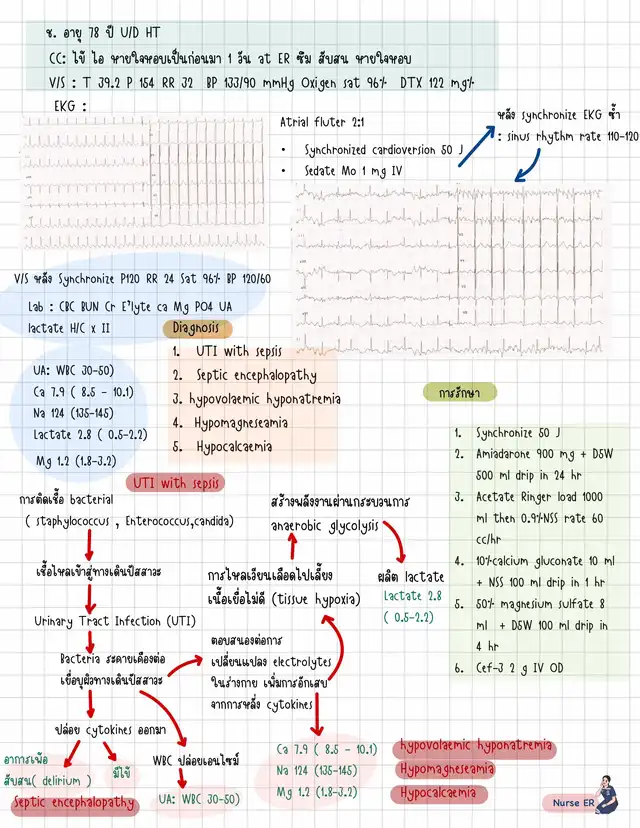 ช. อายุ 78 ปี U/D HT
CC: ไข้ ไอ หายใจหอบเป็นก่อนมา 1 วัน at ER ซึม สับสน หายใจหอบ
V/S : T 39.2 P 154 RR 32 BP 133/90 mmHg Oxigen sat 96% DTX 122 mg%
EKG :
Atrial fluter 2:1
• Synchronized cardioversion 50 J
• Sedate Mo 1 mg IV
หลัง synchronize EKG ซ้ำ
: sinus rhythm rate 110-120
V/S หลัง Synchronize P120 RR 24 Sat 96% BP 120/60
Lab : CBC BUN Cr E'lyte ca Mg PO4 UA
lactate H/C x II
UA: WBC 30-50)
Ca 7.9 ( 8.5 - 10.1)
Na 124 (135-145)
Lactate 2.8 ( 0.5-2.2)
Mg 1.2 (1.8-3.2)
Diagnosis
1. UTI with sepsis
2. Septic encephalopathy
3. hypovolaemic hyponatremia
4. Hypomagneseamia
5. Hypocalcaemia
การรักษา
1. Synchronize 50 J
2. Amiadarone 900 mg + D5W
500 ml drip in 24 hr
3. Acetate Ringer load 1000
ml then 0.9%NSS rate 60
cc/hr
4. 10%calcium gluconate 10 ml
+ NSS 100 ml drip in 1 hr
5. 50% magnesium sulfate 8
ml + D5W 100 ml drip in
4 hr
6. Cef-3 2 g IV OD
UTI with sepsis
การติดเชื้อ bacterial
( staphylococcus , Enterococcus,candida)
เชื้อไหลเข้าสู่ทางเดินปัสสาวะ
Urinary Tract Infection (UTI)
Bacteria ระคายเคืองต่อ
เยื่อบุผิวทางเดินปัสสาวะ
ปล่อย cytokines ออกมา
อาการเพ้อ
สับสน( delirium )
Septic encephalopathy
มีไข้
WBC ปล่อยเอนไซม์
UA: WBC 30-50)
ตอบสนองต่อการ
เปลี่ยนแปลง electrolytes
ในร่างกาย เพิ่มการอักเสบ
จากการหลั่ง cytokines
การไหลเวียนเลือดไปเลี้ยง
เนื้อเยื่อไม่ดี (tissue hypoxia)
สร้างพลังงานผ่านกระบวนการ
anaerobic glycolysis
ผลิต lactate
Lactate 2.8
( 0.5-2.2)
Ca 7.9 ( 8.5 - 10.1)
Na 124 (135-145)
Mg 1.2 (1.8-3.2)
hypovolaemic hyponatremia
Hypomagneseamia
Hypocalcaemia
Nurse ER